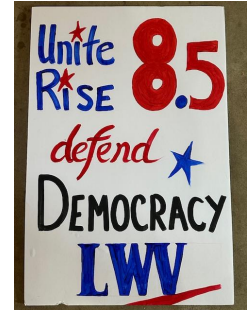 Unite
Rise 8.5
defend
DEMOCRACY
LWV